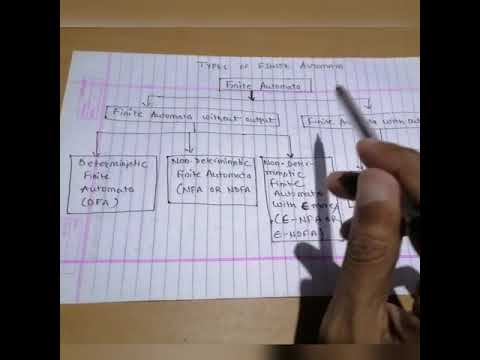 TYPES OF FINITE AUTOMATA
Finite Automata
Finite Automata without output
Finite Automata with
Deterministic
Finite
Automata
(DFA)
Non-Deterministic
Finite Automata
(NFA OR NDFA)
Non-Deter-
ministic
Finite
Automata
with ε moves
(ε-NFA OR
ε-NDFA)